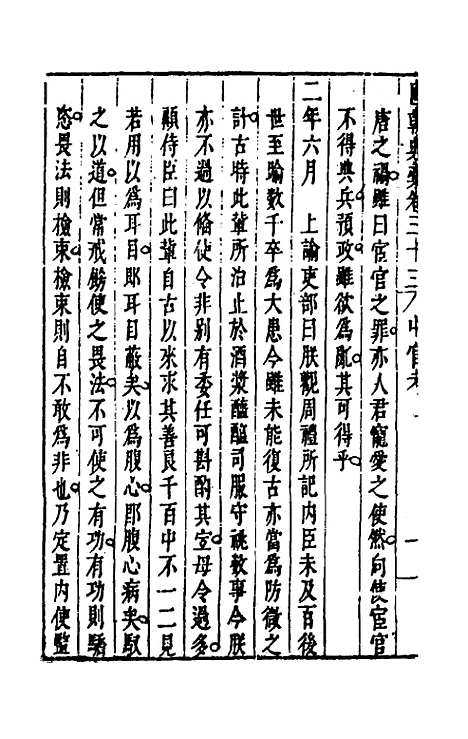 國朝典彙卷三十三 中官考 一
唐之禍雖曰宦官之罪亦人君寵愛之使然向使宦官
不得典兵預政雖欲為亂其可得乎
二年六月 上諭吏部曰朕觀周禮所記內臣未及百後
世至踰數千卒為大患今雖未能復古亦當為防微之
計古時此輩所治止於酒漿醯醢司服守祧數事今朕
亦不過以俻使令非別有委任可斟酌其宜毋令過多
顧侍臣曰此輩自古以來求其善良千百中不一二見
若用以為耳目郎耳目蔽矣以為腹心郎腹心病矣馭
之以道但常戒飭使之畏法不可使之有功有功則驕
恣畏法則檢束檢束則自不敢為非也乃定置內使監